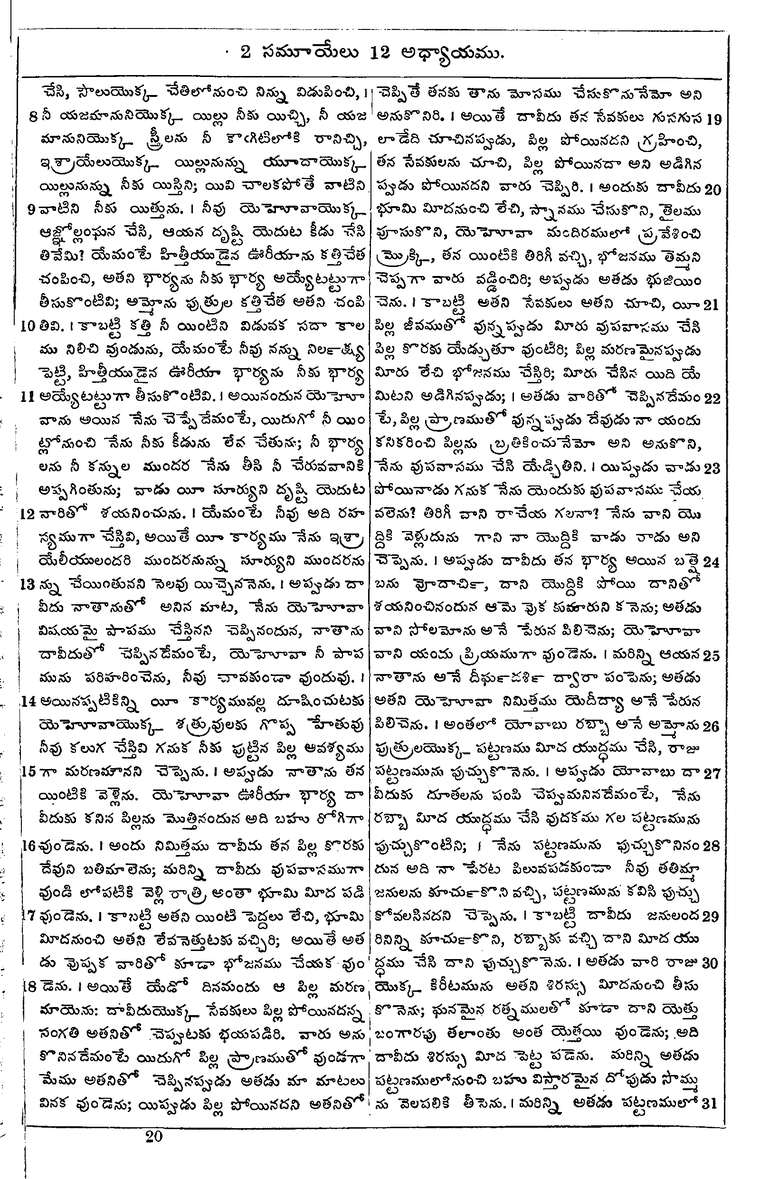 2 సమూయేలు 12 అధ్యాయము.
చేసి, సౌలుయొక్క చేతిలోనుంచి నిన్ను విడుపించి, ।
8 నీ యజమానునియొక్క యిల్లు నీకు యిచ్చి, నీ యజ
మానునియొక్క స్త్రీలను నీ కాఁగిటిలోకి రానిచ్చి,
ఇశ్రాయేలుయొక్క యిల్లునున్ను యూదాయొక్క
యిల్లునున్ను నీకు యిస్తిని; యివి చాలకపోతే వాటిని
9 వాటిని నీకు యిత్తును. । నీవు యెహోవాయొక్క
ఆజ్ఞోల్లంఘన చేసి, ఆయన దృష్టి యెదుట కీడు చేసి
తివేమి? యేమంటే హిత్తీయుడైన ఊరీయాను కత్తిచేత
చంపించి, అతని భార్యను నీకు భార్య అయ్యేటట్టుగా
తీసుకొంటివి; అమ్మోను పుత్రుల కత్తిచేత అతని చంపి
10 తివి. । కాబట్టి కత్తి నీ యింటిని విడువక సదా కాల
ము నిలిచి వుండును, యేమంటే నీవు నన్ను నిలక్ష్య
పెట్టి, హిత్తీయుడైన ఊరీయా భార్యను నీకు భార్య
11 అయ్యేటట్టుగా తీసుకొంటివి. । అయినందున యెహో
వాను అయిన నేను చెప్పేదేమంటే, యిదుగో నీ యిం
ట్లోనుంచి నేను నీకు కీడును లేవ చేతును; నీ భార్య
లను నీ కన్నుల ముందర నేను తీసి నీ చేరువవానికి
అప్పగింతును; వాడు యీ సూర్యుని దృష్టి యెదుట
12 వారితో శయనించును. । యేమంటే నీవు అది రహ
స్యముగా చేస్తివి, అయితే యీ కార్యము నేను ఇశ్రా
యేలీయులందరి ముందరనున్ను సూర్యుని ముందరను
13 న్ను చేయింతునని సెలవు యిచ్చెననెను. । అప్పుడు దా
వీదు నాతానుతో అనిన మాట, నేను యెహోవా
విషయమై పాపము చేస్తినని చెప్పినందున, నాతాను
దావీదుతో చెప్పినదేమంటే, యెహోవా నీ పాప
మును పరిహరించెను, నీవు చావకుండా వుందువు. ।
14 అయినప్పటికిన్ని యీ కార్యమువల్ల దూషించుటకు
యెహోవాయొక్క శత్రువులకు గొప్ప హేతువు
నీవు కలుగ చేస్తివి గనుక నీకు పుట్టిన పిల్ల అవశ్యము
15 గా మరణమానని చెప్పెను. । అప్పుడు నాతాను తన
యింటికి వెళ్లెను. యెహోవా ఊరీయా భార్య దా
వీదుకు కనిన పిల్లను మొత్తినందున అది బహు రోగిగా
16 వుండెను. । అందు నిమిత్తము దావీదు తన పిల్ల కొరకు
దేవుని బతిమాలెను; మరిన్ని దావీదు వుపవాసముగా
వుండి లోపటికి వెళ్లి రాత్రి అంతా భూమి మీద పడి
17 వుండెను. । కాబట్టి అతని యింటి పెద్దలు లేచి, భూమి
మీదనుంచి అతని లేవనెత్తుటకు వచ్చిరి; అయితే అత
డు వొప్పక వారితో కూడా భోజనము చేయక వుం
18 డెను. । అయితే యేడో దినమందు ఆ పిల్ల మరణ
మాయెను: దావీదుయొక్క సేవకులు పిల్ల పోయినదన్న
సంగతి అతనితో చెప్పటకు భయపడిరి. వారు అను
కొనినదేమంటే యిదుగో పిల్ల ప్రాణముతో వుండగా
మేము అతనితో చెప్పినప్పుడు అతడు మా మాటలు
వినక వుండెను; యిప్పుడు పిల్ల పోయినదని అతనితో
చెప్పితే తనకు తాను మోసము చేసుకొనునేమో అని
అనుకొనిరి. । అయితే దావీదు తన సేవకులు గుసగుస 19
లాడేది చూచినప్పుడు, పిల్ల పోయినదని గ్రహించి,
తన సేవకులను చూచి, పిల్ల పోయినదా అని అడిగిన
ప్పుడు పోయినదని వారు చెప్పిరి. । అందుకు దావీదు 20
భూమి మీదనుంచి లేచి, స్నానము చేసుకొని, తైలము
పూసుకొని, యెహోవా మందిరములో ప్రవేశించి
మ్రొక్కి, తన యింటికి తిరిగీ వచ్చి, భోజనము తెమ్మని
చెప్పగా వారు వడ్డించిరి; అప్పుడు అతడు భుజియిం
చెను. । కాబట్టి అతని సేవకులు అతని చూచి, యీ 21
పిల్ల జీవముతో వున్నప్పుడు మీరు వుపవాసము చేసి
పిల్ల కొరకు యేడ్చుతూ వుంటిరి; పిల్ల మరణమైనప్పుడు
మీరు లేచి భోజనము చేస్తిరి; మీరు చేసిన యిది యే
మిటని అడిగినప్పుడు; । అతడు వారితో చెప్పినదేమం 22
టే, పిల్ల ప్రాణముతో వున్నప్పుడు దేవుడు నా యందు
కనికరించి పిల్లను బ్రతికించునేమో అని అనుకొని,
నేను వుపవాసము చేసి యేడ్చితిని. । యిప్పుడు వాడు 23
పోయినాడు గనుక నేను యెందుకు వుపవాసము చేయ
వలెను? తిరిగీ వాని రాచేయ గలనా? నేను వాని యొ
ద్దికి వెళ్లుదును గాని నా యొద్దికి వాడు రాడు అని
చెప్పెను. । అప్పుడు దావీదు తన భార్య అయిన బత్షె 24
బను వోదార్చి, దాని యొద్దికి పోయి దానితో
శయనించినందున ఆమె వొక కుమారుని కనెను; అతడు
వాని సోలమోను అనే పేరున పిలిచెను; యెహోవా
వాని యందు ప్రియముగా వుండెను. । మరిన్ని ఆయన 25
నాతాను అనే దీర్ఘదర్శి ద్వారా పంపెను; అతడు
అతని యెహోవా నిమిత్తము యెదీద్యా అనే పేరున
పిలిచెను. । అంతలో యోవాబు రబ్బా అనే అమ్మోను 26
పుత్రులయొక్క పట్టణము మీద యుద్ధము చేసి, రాజు
పట్టణమును పుచ్చుకొనెను. । అప్పుడు యోవాబు దా 27
వీదుకు దూతలను పంపి చెప్పమనినదేమంటే, నేను
రబ్బా మీద యుద్ధము చేసి వుదకము గల పట్టణమును
పుచ్చుకొంటిని; । నేను పట్టణమును పుచ్చుకొనినం 28
దున అది నా పేరట పిలువపడకుండా నీవు తతిమ్మా
జనులను కూర్చుకొని వచ్చి, పట్టణమును కవిసి పుచ్చు
కోవలసినదని చెప్పెను. । కాబట్టి దావీదు జనులంద 29
రినిన్ని కూర్చుకొని, రబ్బాకు వచ్చి దాని మీద యు
ద్ధము చేసి దాని పుచ్చుకొనెను. । అతడు వారి రాజు 30
యొక్క కిరీటమును అతని శిరస్సు మీదనుంచి తీసు
కొనెను; ఘనమైన రత్నములతో కూడా దాని యెత్తు
బంగారపు తలాంతు అంత యెత్తయి వుండెను; అది
దావీదు శిరస్సు మీద పెట్ట పడెను. మరిన్ని అతడు
పట్టణములోనుంచి బహు విస్తారమైన దోపుడు సొమ్ము
ను వెలపలికి తీసెను. । మరిన్ని అతడు పట్టణములో 31
20